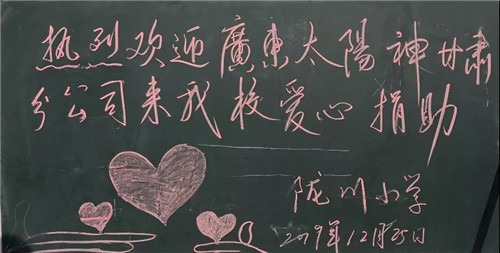 热烈欢迎廣東太陽神甘肃
分公司来我校爱心捐助
陇川小学
2019年12月25日